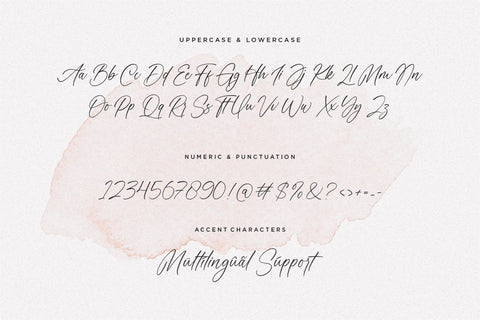 UPPERCASE & LOWERCASE
Aa Bb Cc Dd Ee Ff Gg Hh Ii Jj Kk Ll Mm Nn
Oo Pp Qq Rr Ss Tt Uu Vv Ww Xx Yy Zz
NUMERIC & PUNCTUATION
1234567890!@#$%&?<>+=_-
ACCENT CHARACTERS
Mültilingûãl Súpport